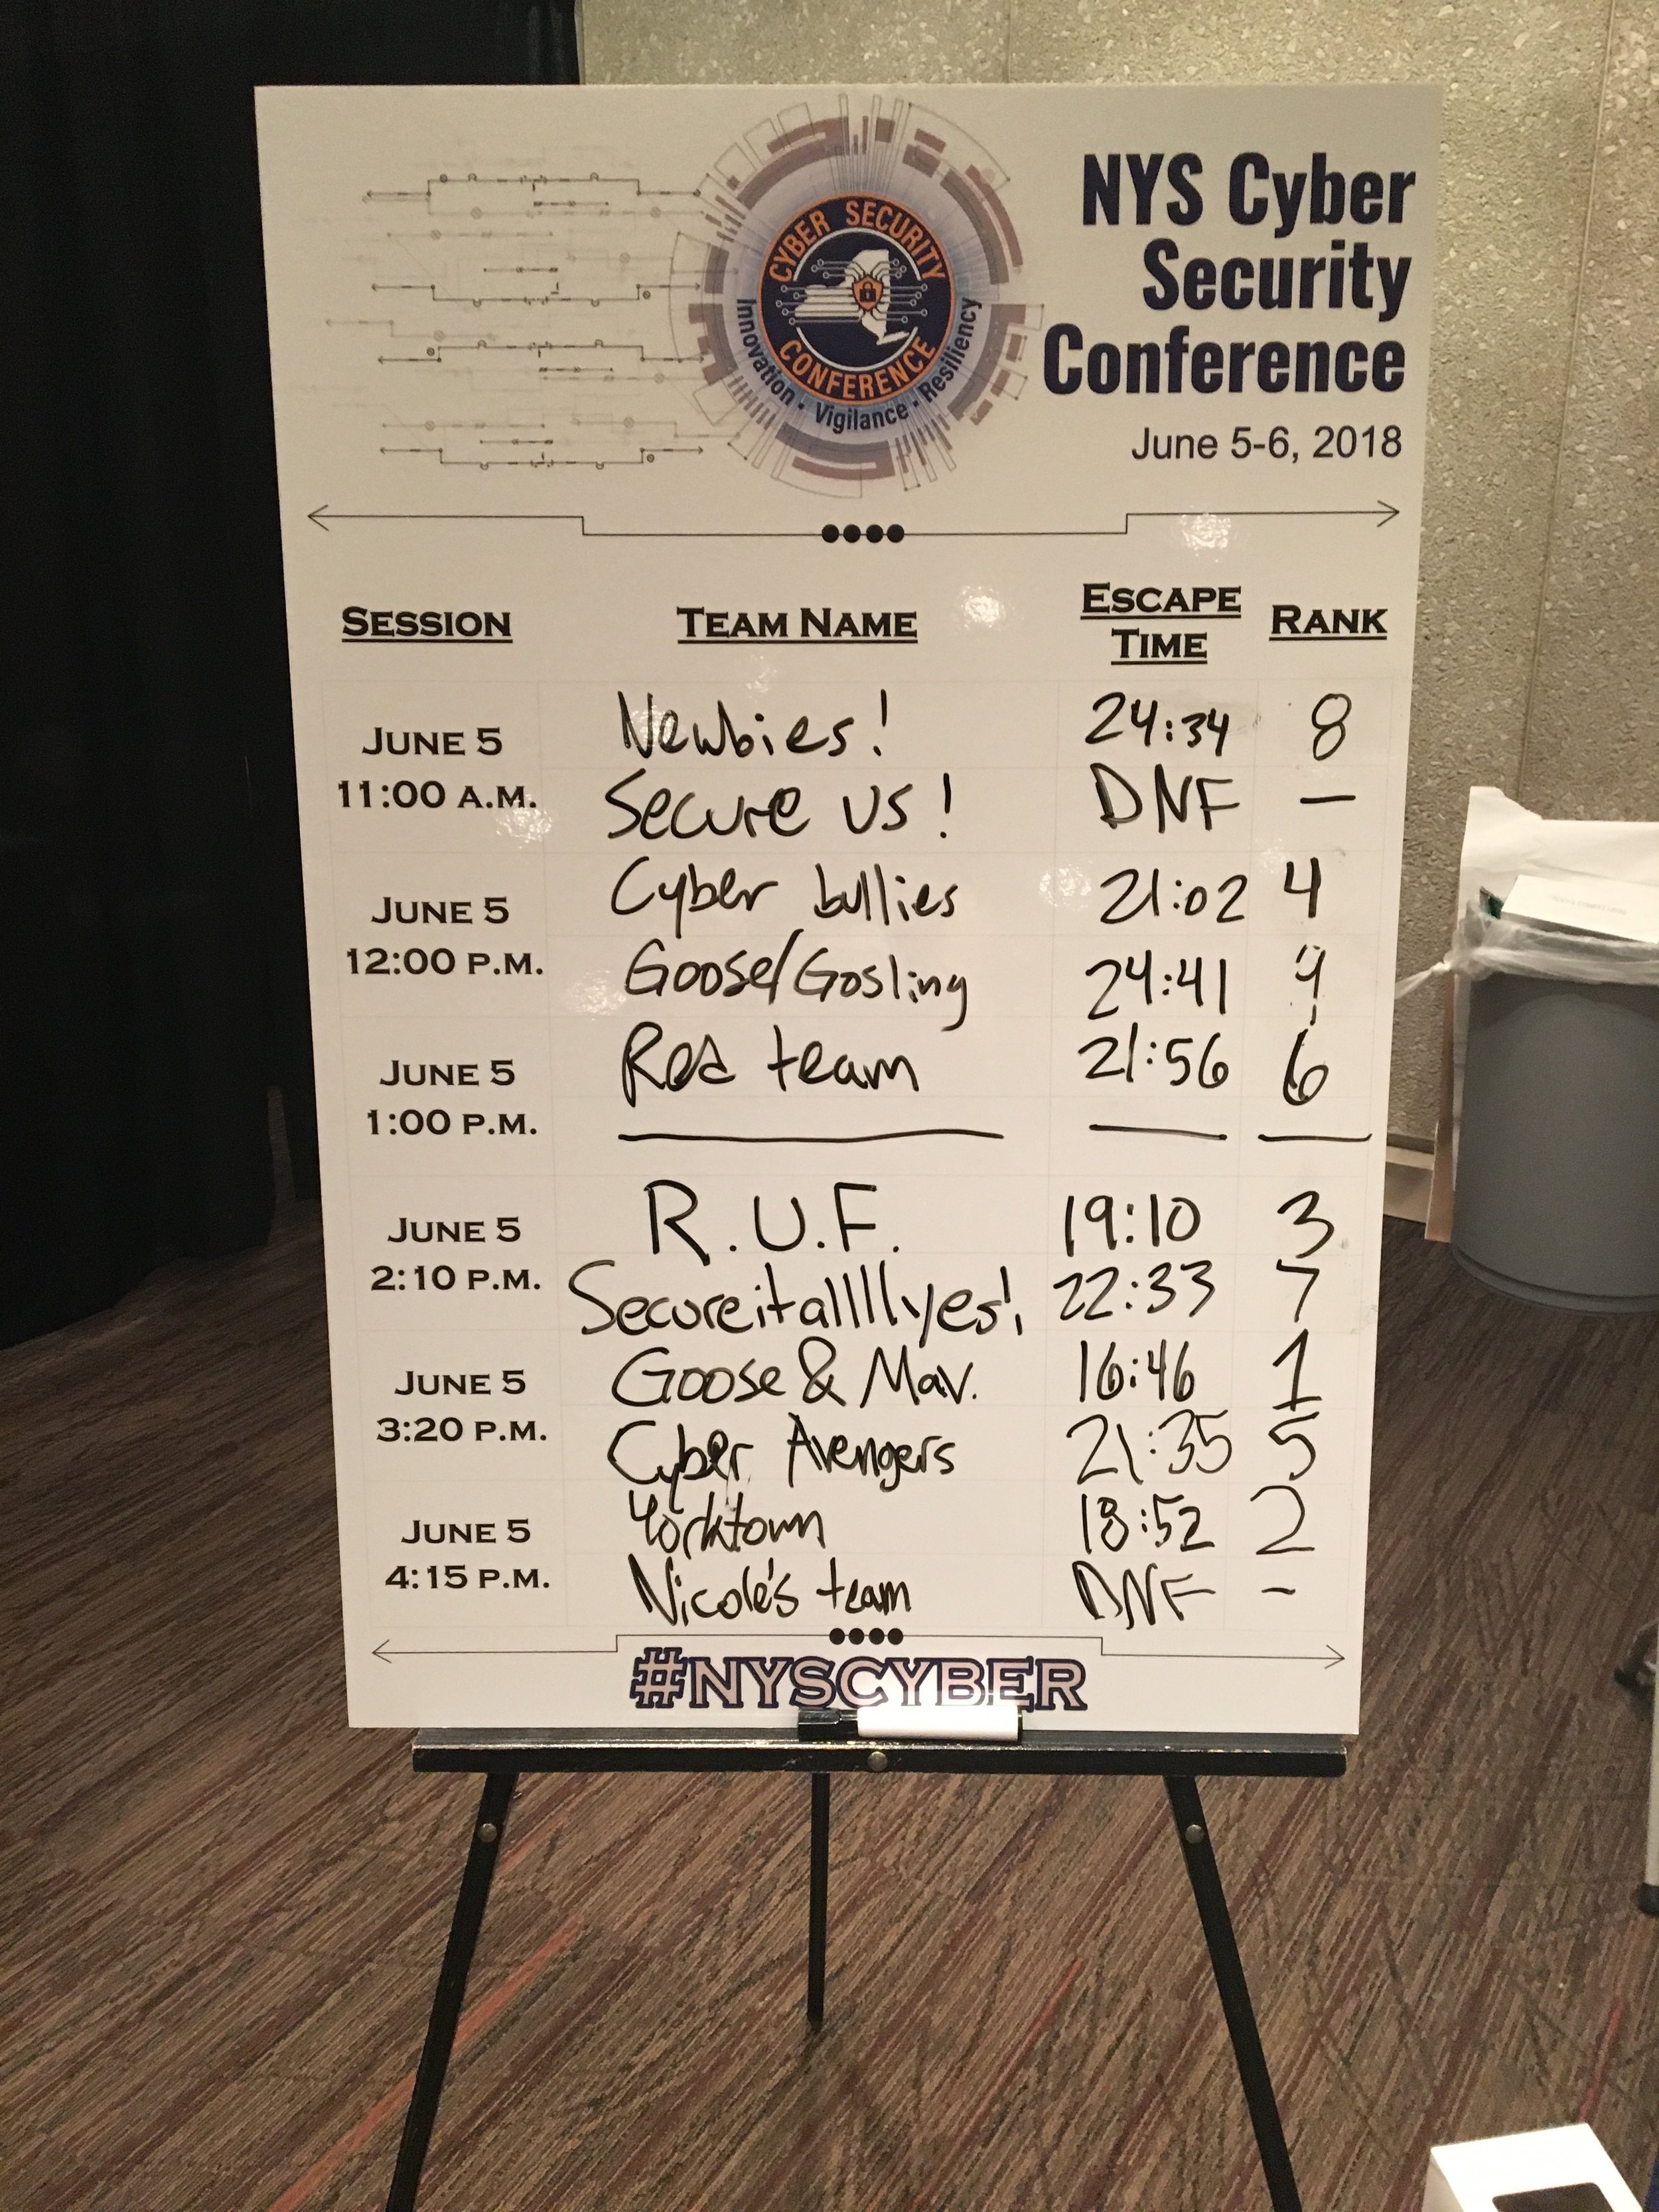 CYBER SECURITY
CONFERENCE
Innovation • Vigilance • Resiliency
NYS Cyber
Security
Conference
June 5-6, 2018
SESSION TEAM NAME ESCAPE TIME RANK
JUNE 5
11:00 A.M.
Newbies! 24:34 8
Secure us! DNF —
JUNE 5
12:00 P.M.
Cyber bullies 21:02 4
Goose/Gosling 24:41 9
JUNE 5
1:00 P.M.
Red team 21:56 6
JUNE 5
2:10 P.M.
R.U.F. 19:10 3
Secureitallllyes! 22:33 7
JUNE 5
3:20 P.M.
Goose & Mav. 16:46 1
Cyber Avengers 21:35 5
JUNE 5
4:15 P.M.
Yorktown 18:52 2
Nicole's team DNF -
#NYSCYBER